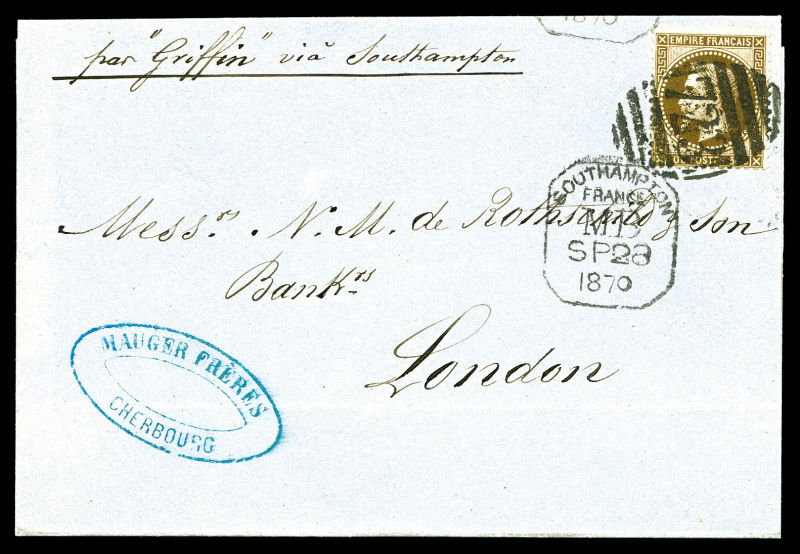 1870
par "Griffin" via Southampton
EMPIRE FRANÇAIS
723
POSTES
SOUTHAMPTON
FRANCE
SP28
1870
Messrs. N. M. de Rothschild & Son
Bankrs
London
MAUGER FRÈRES
CHERBOURG